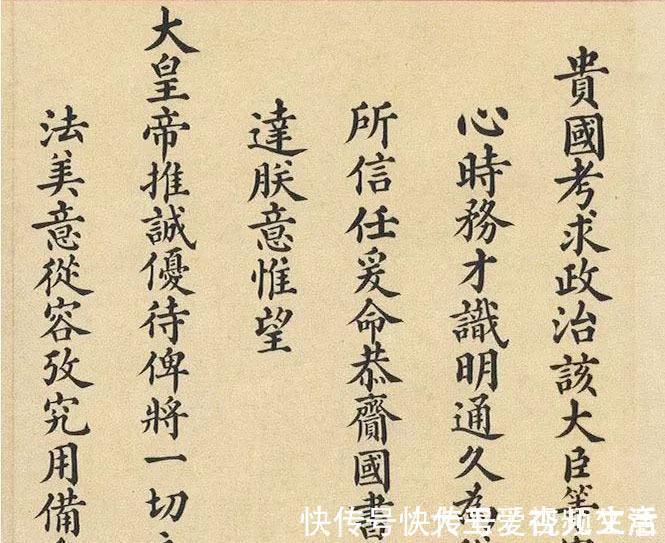 貴國考求政治該大臣等
心時務才識明通久為
所信任爰命恭齎國書
達朕意惟望
大皇帝推誠優待俾將一切
法美意從容攷究用備
快传号